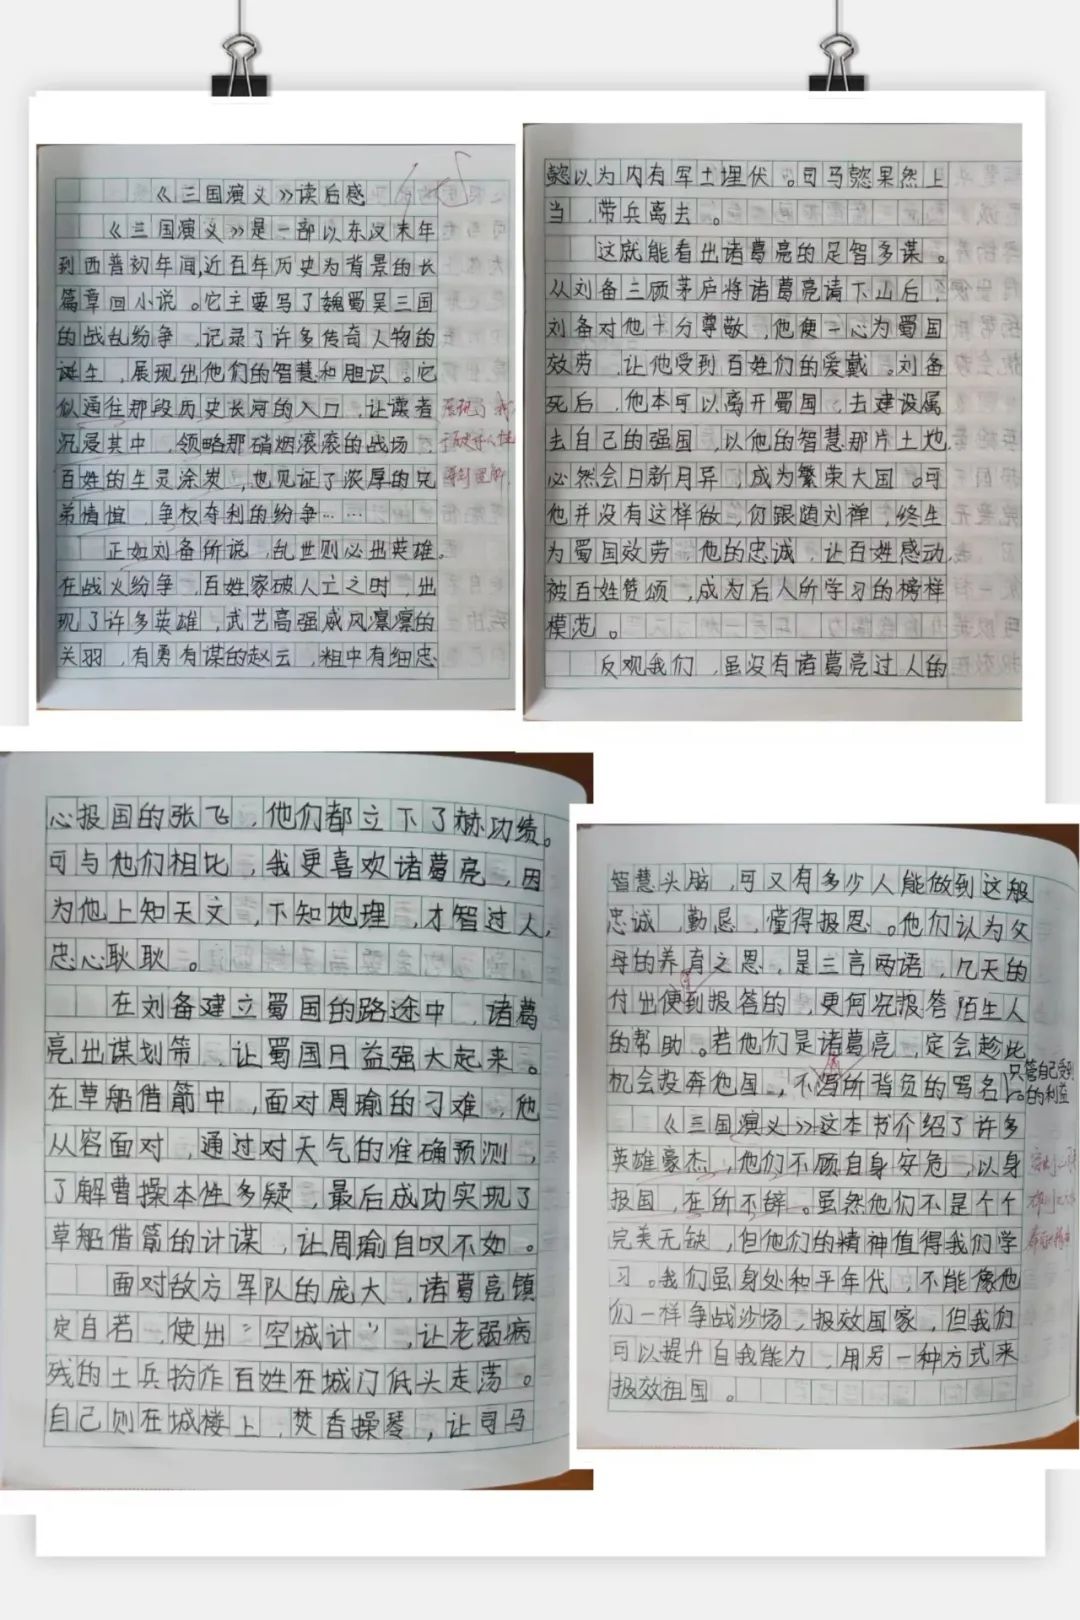 《三国演义》读后感
《三国演义》是一部以东汉末年
到西晋初年间,近百年历史为背景的长
篇章回小说。它主要写了魏蜀吴三国
的战乱纷争,记录了许多传奇人物的
诞生,展现出他们的智慧和胆识。它
似通往那段历史长河的入口,让读者
沉浸其中,领略那硝烟滚滚的战场,
百姓的生灵涂炭,也见证了浓厚的兄
弟情谊,争权夺利的纷争……
正如刘备所说,乱世则必出英雄。
在战火纷争,百姓家破人亡之时,出
现了许多英雄,武艺高强威风凛凛的
关羽,有勇有谋的赵云,粗中有细忠
心报国的张飞,他们都立下了赫功绩。
可与他们相比,我更喜欢诸葛亮,因
为他上知天文,下知地理,才智过人,
忠心耿耿。
在刘备建立蜀国的路途中,诸葛
亮出谋划策,让蜀国日益强大起来。
在草船借箭中,面对周瑜的刁难,他
从容面对,通过对天气的准确预测,
了解曹操本性多疑,最后成功实现了
草船借箭的计谋,让周瑜自叹不如。
面对敌方军队的庞大,诸葛亮镇
定自若,使出“空城计”,让老弱病
残的士兵扮作百姓在城门低头走荡。
自己则在城楼上,焚香操琴,让司马
懿以为内有军士埋伏。司马懿果然上
当,带兵离去。
这就能看出诸葛亮的足智多谋。
从刘备三顾茅庐将诸葛亮请下山后,
刘备对他十分尊敬,他便一心为蜀国
效劳,让他受到百姓们的爱戴。刘备
死后,他本可以离开蜀国,去建设属
去自己的强国,以他的智慧那片土地,
必然会日新月异,成为繁荣大国。可
他并没有这样做,仍跟随刘禅,终生
为蜀国效劳。他的忠诚,让百姓感动,
被百姓赞颂,成为后人所学习的榜样
模范。
反观我们,虽没有诸葛亮过人的
智慧头脑,可又有多少人能做到这般
忠诚,勤恳,懂得报恩。他们认为父
母的养育之恩,是三言两语,几天的
付出便到报答的,更何况报答陌生人
的帮助。若他们是诸葛亮,定会趁此
机会投奔他国,不
所背负的骂名
只管自己受到
的利益。
《三国演义》这本书介绍了许多
英雄豪杰,他们不顾自身安危,以身
报国,在所不辞。虽然他们不是个个
完美无缺,但他们的精神值得我们学
习。我们虽身处和平年代,不能像他
们一样争战沙场,报效国家,但我们
可以提升自我能力,用另一种方式来
报效祖国。